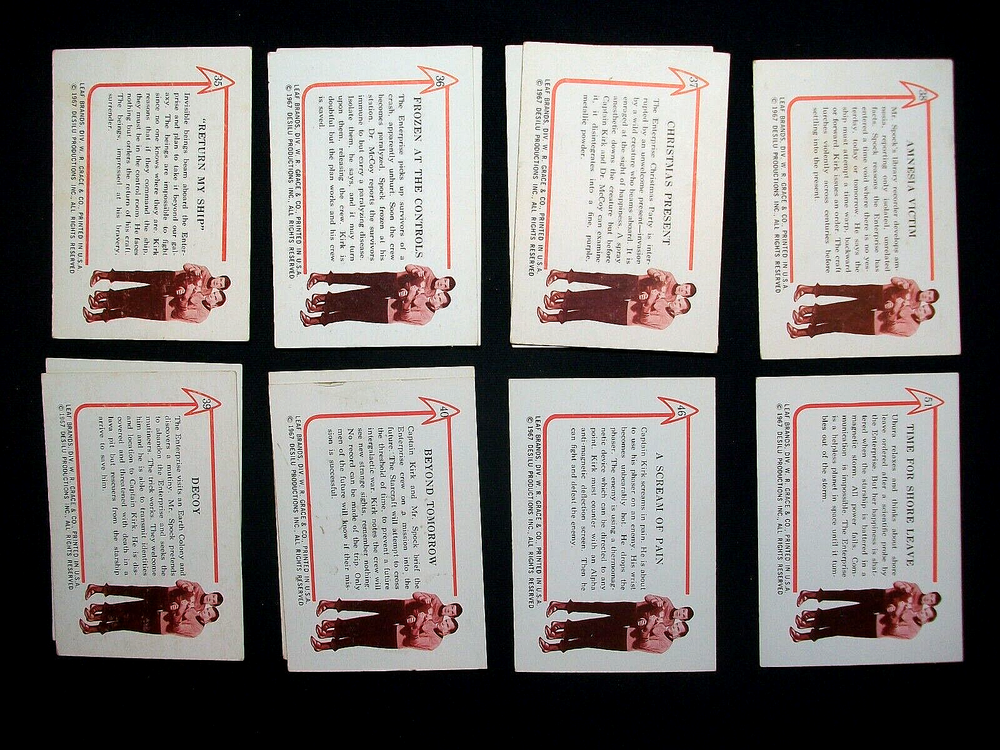 35
"RETURN MY SHIP"
Invisible beings beam aboard the Enter-
prise and plan to take it beyond our gal-
axy. The beings are impossible to fight
since no one knows where they are. Kirk
reasons that if they command the ship,
they must be in the control room. He faces
nothing but orders the return of his craft.
The beings, impressed at his bravery,
surrender.
LEAF BRANDS, DIV. W. R. GRACE & CO., PRINTED IN U.S.A.
© 1967 DESILU PRODUCTIONS INC. ALL RIGHTS RESERVED
36
FROZEN AT THE CONTROLS
The Enterprise picks up survivors of a
crash, apparently unhurt. Soon the crew
becomes paralyzed, Spock frozen at his
station. Dr. McCoy reports the survivors
immune to but carry a paralyzing disease.
Isolate them, he says, and it may turn
upon them releasing the crew. Kirk is
doubtful but the plan works and his crew
is saved.
LEAF BRANDS, DIV. W. R. GRACE & CO., PRINTED IN U.S.A.
© 1967 DESILU PRODUCTIONS INC. ALL RIGHTS RESERVED
37
CHRISTMAS PRESENT
The Enterprise Christmas Party is inter-
rupted by an unwelcome present—invasion
by a wild creature who beams aboard. It is
enraged at the sight of happiness. A spray
anesthetic downs the creature but before
Captain Kirk and Dr. McCoy can examine
it, it disintegrates into a fine, purple,
metallic powder.
LEAF BRANDS, DIV. W. R. GRACE & CO., PRINTED IN U.S.A.
© 1967 DESILU PRODUCTIONS INC. ALL RIGHTS RESERVED
38
AMNESIA VICTIM
Mr. Spock's library recorder develops am-
nesia, reporting only isolated, unrelated
facts. Spock reasons the Enterprise has
entered a time void where there is no yes-
terday, today or tomorrow. He says the
ship must attempt a time warp, backward
or forward. Kirk issues an order. The craft
lurches violently across centuries before
settling into the present.
LEAF BRANDS, DIV. W. R. GRACE & CO., PRINTED IN U.S.A.
© 1967 DESILU PRODUCTIONS INC. ALL RIGHTS RESERVED
39
DECOY
The Enterprise visits an Earth Colony and
discovers a mutiny. Mr. Spock pretends
to abandon the Enterprise and seeks the
mutineers. The trick works. They welcome
him and he is able to transmit identities
and location to Captain Kirk. He is dis-
covered and threatened with death in a
lava pit but rescuers from the starship
arrive to save him.
LEAF BRANDS, DIV. W. R. GRACE & CO., PRINTED IN U.S.A.
© 1967 DESILU PRODUCTIONS INC. ALL RIGHTS RESERVED
40
BEYOND TOMORROW
Captain Kirk and Mr. Spock brief the
Enterprise crew on a mission into the
future. The Starcraft will attempt to cross
the threshold of time, to prevent a future
intergalactic war. Kirk notes the crew will
see new strange sights, remember nothing.
No record can be made of the trip. Only
men of the future will know if their mis-
sion is successful.
LEAF BRANDS, DIV. W. R. GRACE & CO., PRINTED IN U.S.A.
© 1967 DESILU PRODUCTIONS INC. ALL RIGHTS RESERVED
46
A SCREAM OF PAIN
Captain Kirk screams in pain. He is about
to use his phaser on an enemy. His wrist
becomes unbearably hot. He drops the
phaser. The enemy is using a thermomag-
netic device which can be directed to any
point. Kirk must counter with an Alpha
anti-magnetic deflection screen. Then he
can fight and defeat the enemy.
LEAF BRANDS, DIV. W. R. GRACE & CO., PRINTED IN U.S.A.
© 1967 DESILU PRODUCTIONS INC. ALL RIGHTS RESERVED
51
TIME FOR SHORE LEAVE
Uhura relaxes and thinks about shore
leave ordered after a scientific probe by
the Enterprise. But her happiness is shat-
tered when the starship is battered in a
magnetic storm. All power fails. Com-
munication is impossible. The Enterprise
is a helpless planet in space until it tum-
bles out of the storm.
LEAF BRANDS, DIV. W. R. GRACE & CO., PRINTED IN U.S.A.
© 1967 DESILU PRODUCTIONS INC. ALL RIGHTS RESERVED